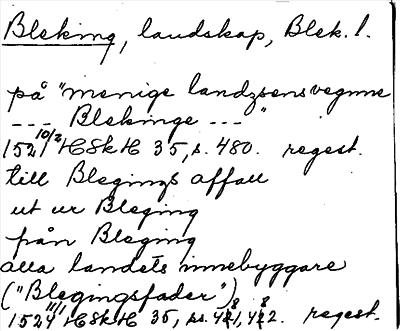 Bleking, landskap, Blek. l.
på "menige landzsens vegnne
--- Blekinge --- "
1521 10/2 HSkH 35, s. 480. regest.
till Blegings affall
ut ur Bleging
från Bleging
alla landets innebyggare
("Blegingsfader")
1524 11/1 HSkH 35, ss. 481, 482. regest.